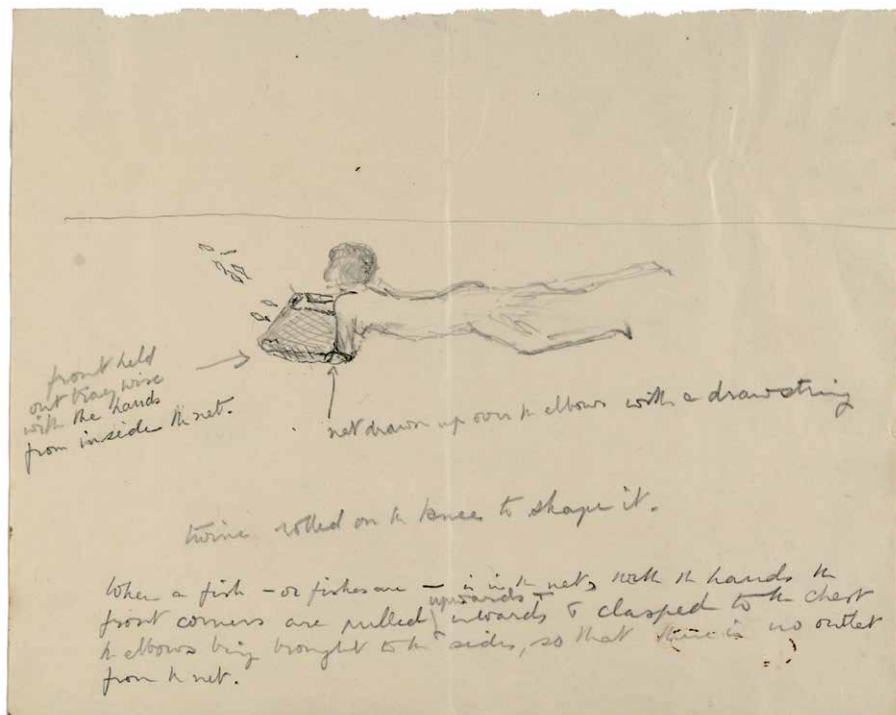 front held
out traywise
with the hands
from inside th net.
net drawn up over th elbows with a drawstring
twine rolled on th knee to shape it.
When a fish - or fishes are - is in th net, with th hands th
front corners are pulled upwards + inwards & clasped to th chest
th elbows being brought to th sides, so that there is no outlet
from th net.